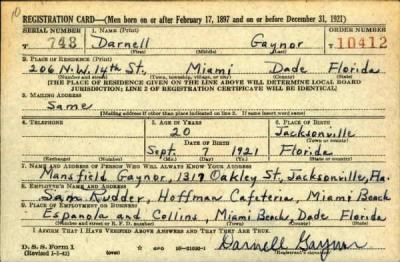 REGISTRATION CARD—(Men born on or after February 17, 1897 and on or before December 31, 1921)
SERIAL NUMBER 1. NAME (Print) ORDER NUMBER
T 743 Darnell Gaynor T 10412
(First) (Middle) (Last)
2. PLACE OF RESIDENCE (Print)
206 N.W. 14th St. Miami Dade Florida
(Number and street) (Town, township, village, or city) (County) (State)
[THE PLACE OF RESIDENCE GIVEN ON THE LINE ABOVE WILL DETERMINE LOCAL BOARD
JURISDICTION; LINE 2 OF REGISTRATION CERTIFICATE WILL BE IDENTICAL]
3. MAILING ADDRESS
Same
[Mailing address if other than place indicated on line 2. If same insert word same]
4. TELEPHONE 5. AGE IN YEARS 6. PLACE OF BIRTH
20 Jacksonville
DATE OF BIRTH (Town or county)
Sept. 7 1921 Florida
(Exchange) (Number) (Mo.) (Day) (Yr.) (State or country)
7. NAME AND ADDRESS OF PERSON WHO WILL ALWAYS KNOW YOUR ADDRESS
Mansfield Gaynor, 1317 Oakley St, Jacksonville, Fla.
8. EMPLOYER'S NAME AND ADDRESS
Sam Rudder, Hoffman Cafeteria, Miami Beach
9. PLACE OF EMPLOYMENT OR BUSINESS
Espanola and Collins, Miami Beach, Dade Florida
(Number and street or R. F. D. number) (Town) (County) (State)
I AFFIRM THAT I HAVE VERIFIED ABOVE ANSWERS AND THAT THEY ARE TRUE.
D. S. S. Form 1
(Revised 1-1-42) Darnell Gaynor